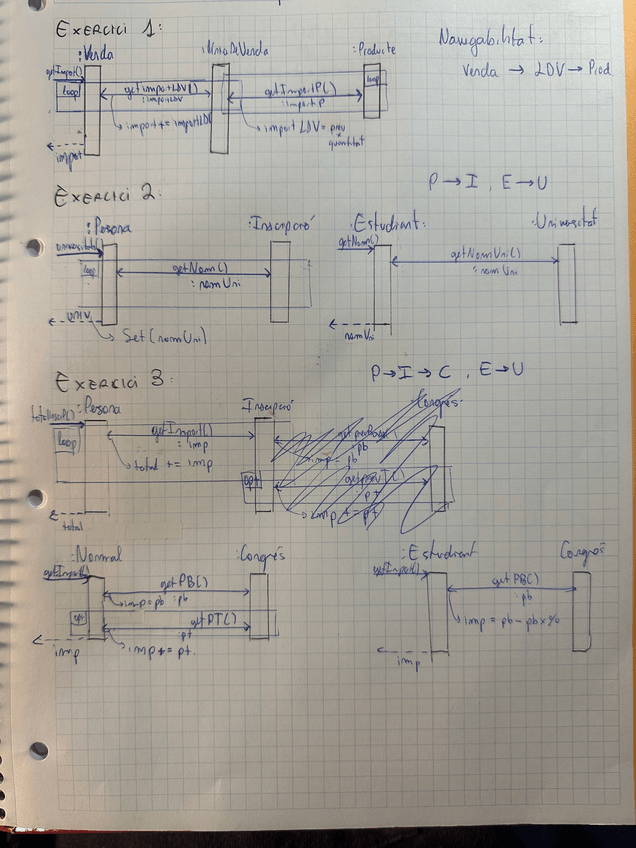 EXERCICI 1:
Navegabilitat:
:Venda
:LíniaDeVenda
:Producte
Venda → LDV → Prod
getImport()
loop
getImportLDV()
: importLDV
getImportP()
: import P
loop
import += importLDV
import LDV = preu
x
quantitat
import
P → I , E → U
EXERCICI 2:
:Persona
:Inscripció
:Estudiant:
:Universitat
universitats()
getNom()
loop
getNom()
: nomUni
getNomUni()
: nomUni
univ
Set(nomUni)
nomUni
EXERCICI 3:
P → I → C , E → U
:Persona
Inscripció
:Congrés
loop
getImport()
: imp
total += imp
pb
imp = pb
opt
pt
imp += pt
total
:Normal
:Congrés
:Estudiant
Congrés
getImport()
getPB()
imp = pb
:pb
getImport()
getPB()
:pb
opt
getPT()
:pt
imp += pt.
imp = pb - pb×%
imp
imp